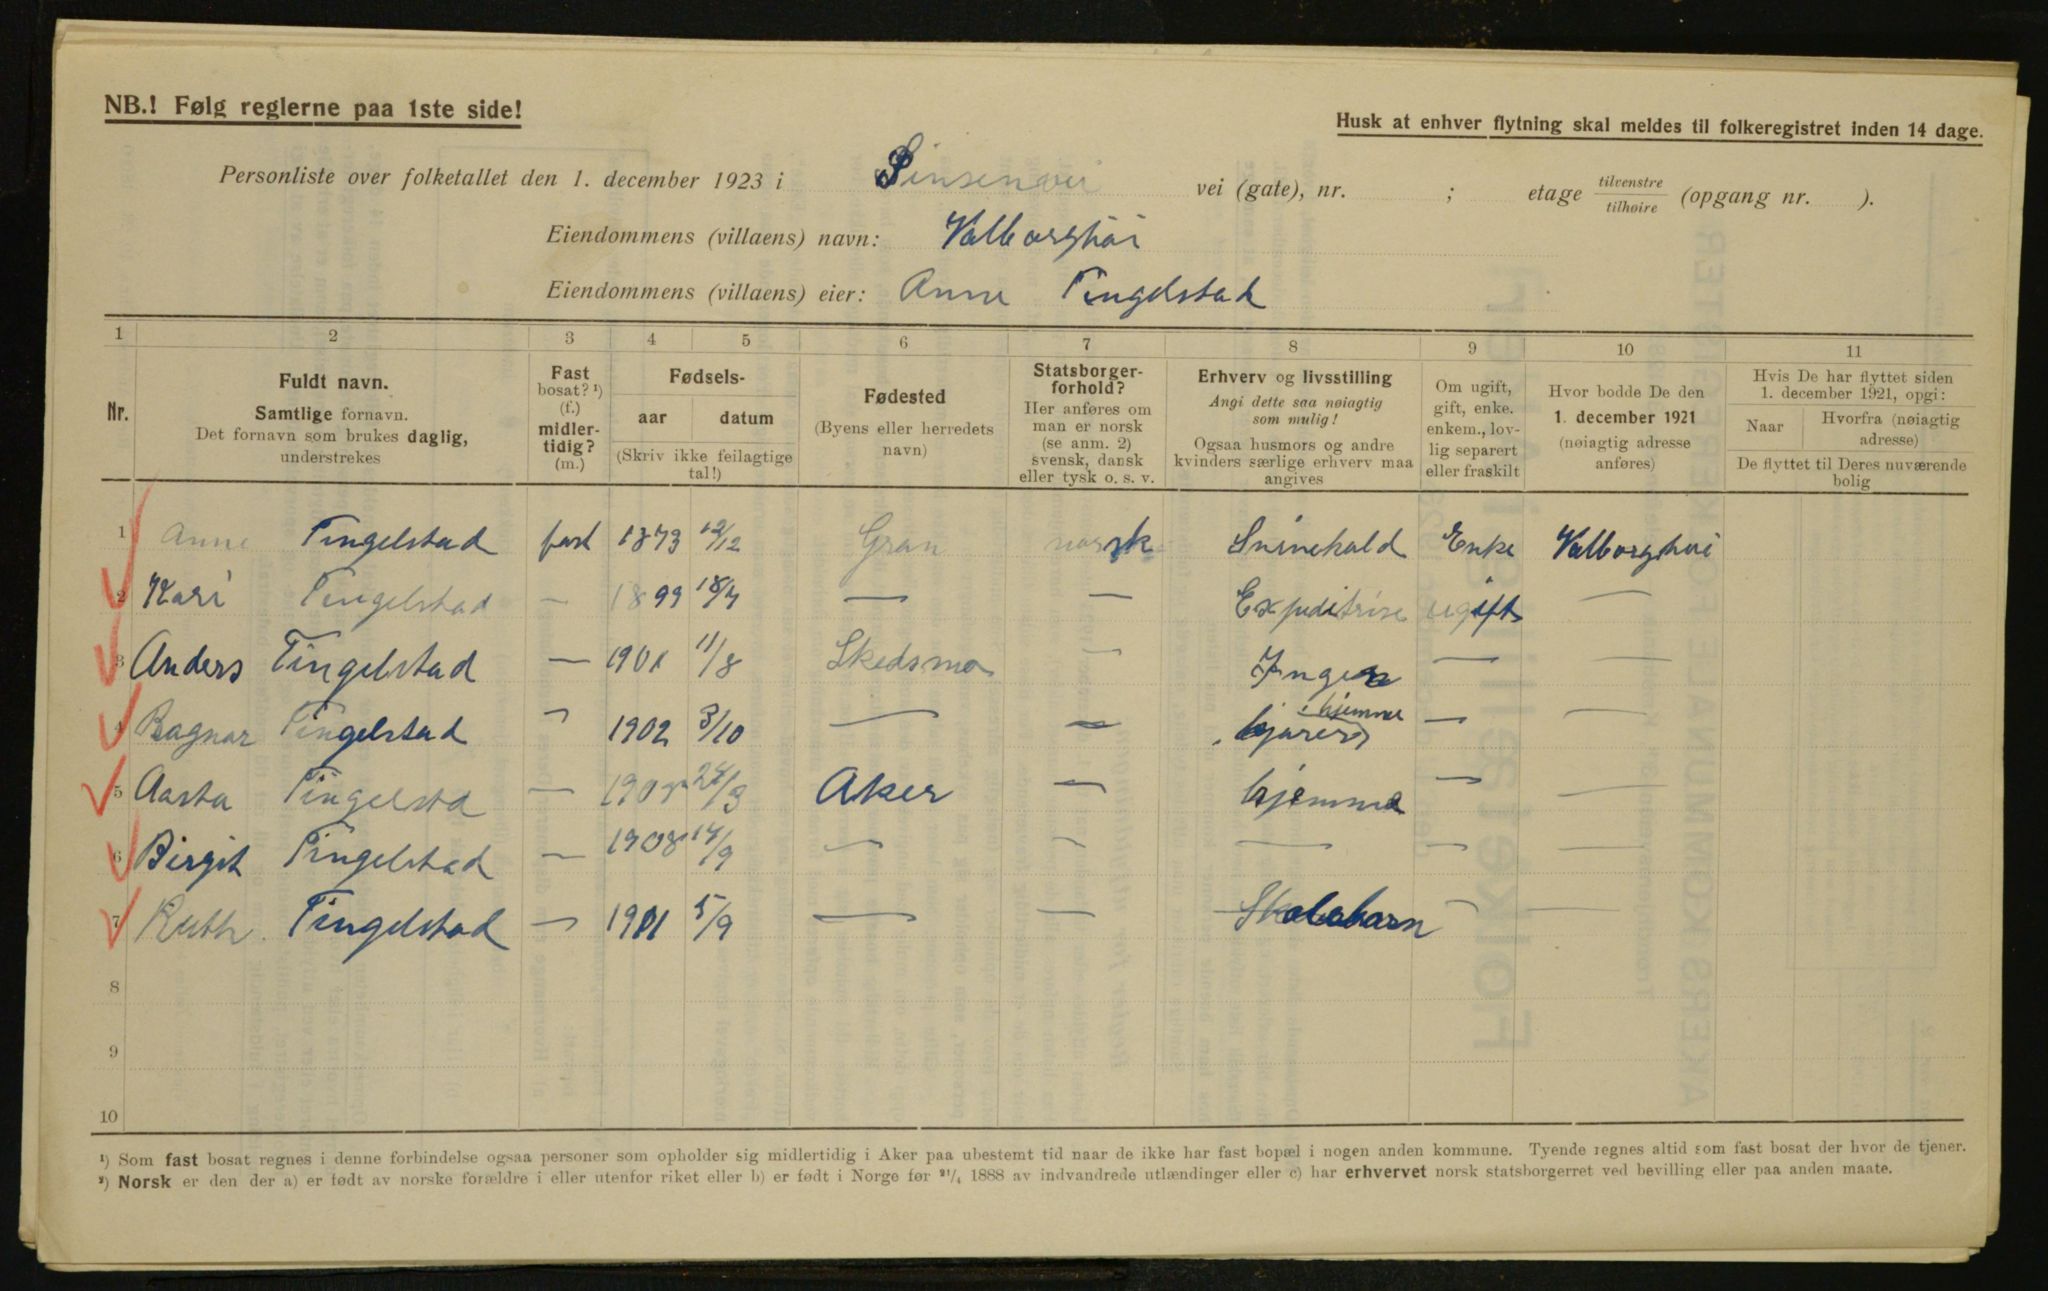 NB.! Følg reglerne paa 1ste side!
Husk at enhver flytning skal meldes til folkeregistret inden 14 dage.
Personliste over folketallet den 1. december 1923 i Sinsenvei vei (gate), nr. ; etage tilvenstre/tilhøire (opgang nr. ).
Eiendommens (villaens) navn: Valborghöi
Eiendommens (villaens) eier: Anne Tingelstad
1 2 3 4 5 6 7 8 9 10 11
Nr.
Fuldt navn.
Samtlige fornavn.
Det fornavn som brukes daglig,
understrekes
Fast
bosat? ¹)
(f.)
midler-
tidig?
(m.)
Fødsels-
aar datum
(Skriv ikke feilagtige
tal!)
Fødested
(Byens eller herredets
navn)
Statsborger-
forhold?
Her anføres om
man er norsk
(se anm. 2)
svensk, dansk
eller tysk o. s. v.
Erhverv og livsstilling
Angi dette saa nøiagtig
som mulig!
Ogsaa husmors og andre
kvinders særlige erhverv maa
angives
Om ugift,
gift, enke.
enkem., lov-
lig separert
eller fraskilt
Hvor bodde De den
1. december 1921
(nøiagtig adresse
anføres)
Hvis De har flyttet siden
1. december 1921, opgi:
Naar
Hvorfra (nøiagtig
adresse)
De flyttet til Deres nuværende
bolig
1 Anne Tingelstad fast 1873 12/12 Gran norsk Enke Valborghöi
2 Kari Tingelstad — 1899 18/7 — — Expeditrise ugift —
3 Anders Tingelstad — 1901 11/8 Skedsmo — Ingen — —
4 Ragnar Tingelstad — 1902 3/10 — — hjemme — —
5 Aasta Tingelstad — 24/3 Aker — hjemme — —
6 Birgit Tingelstad — 1908 14/9 — — — — —
7 Ruth Tingelstad — 1911 5/9 — — Skolebarn — —
8
9
10
¹) Som fast bosat regnes i denne forbindelse ogsaa personer som opholder sig midlertidig i Aker paa ubestemt tid naar de ikke har fast bopæl i nogen anden kommune. Tyende regnes altid som fast bosat der hvor de tjener.
²) Norsk er den der a) er født av norske forældre i eller utenfor riket eller b) er født i Norge før ²¹/₄ 1888 av indvandrede utlændinger eller c) har erhvervet norsk statsborgerret ved bevilling eller paa anden maate.